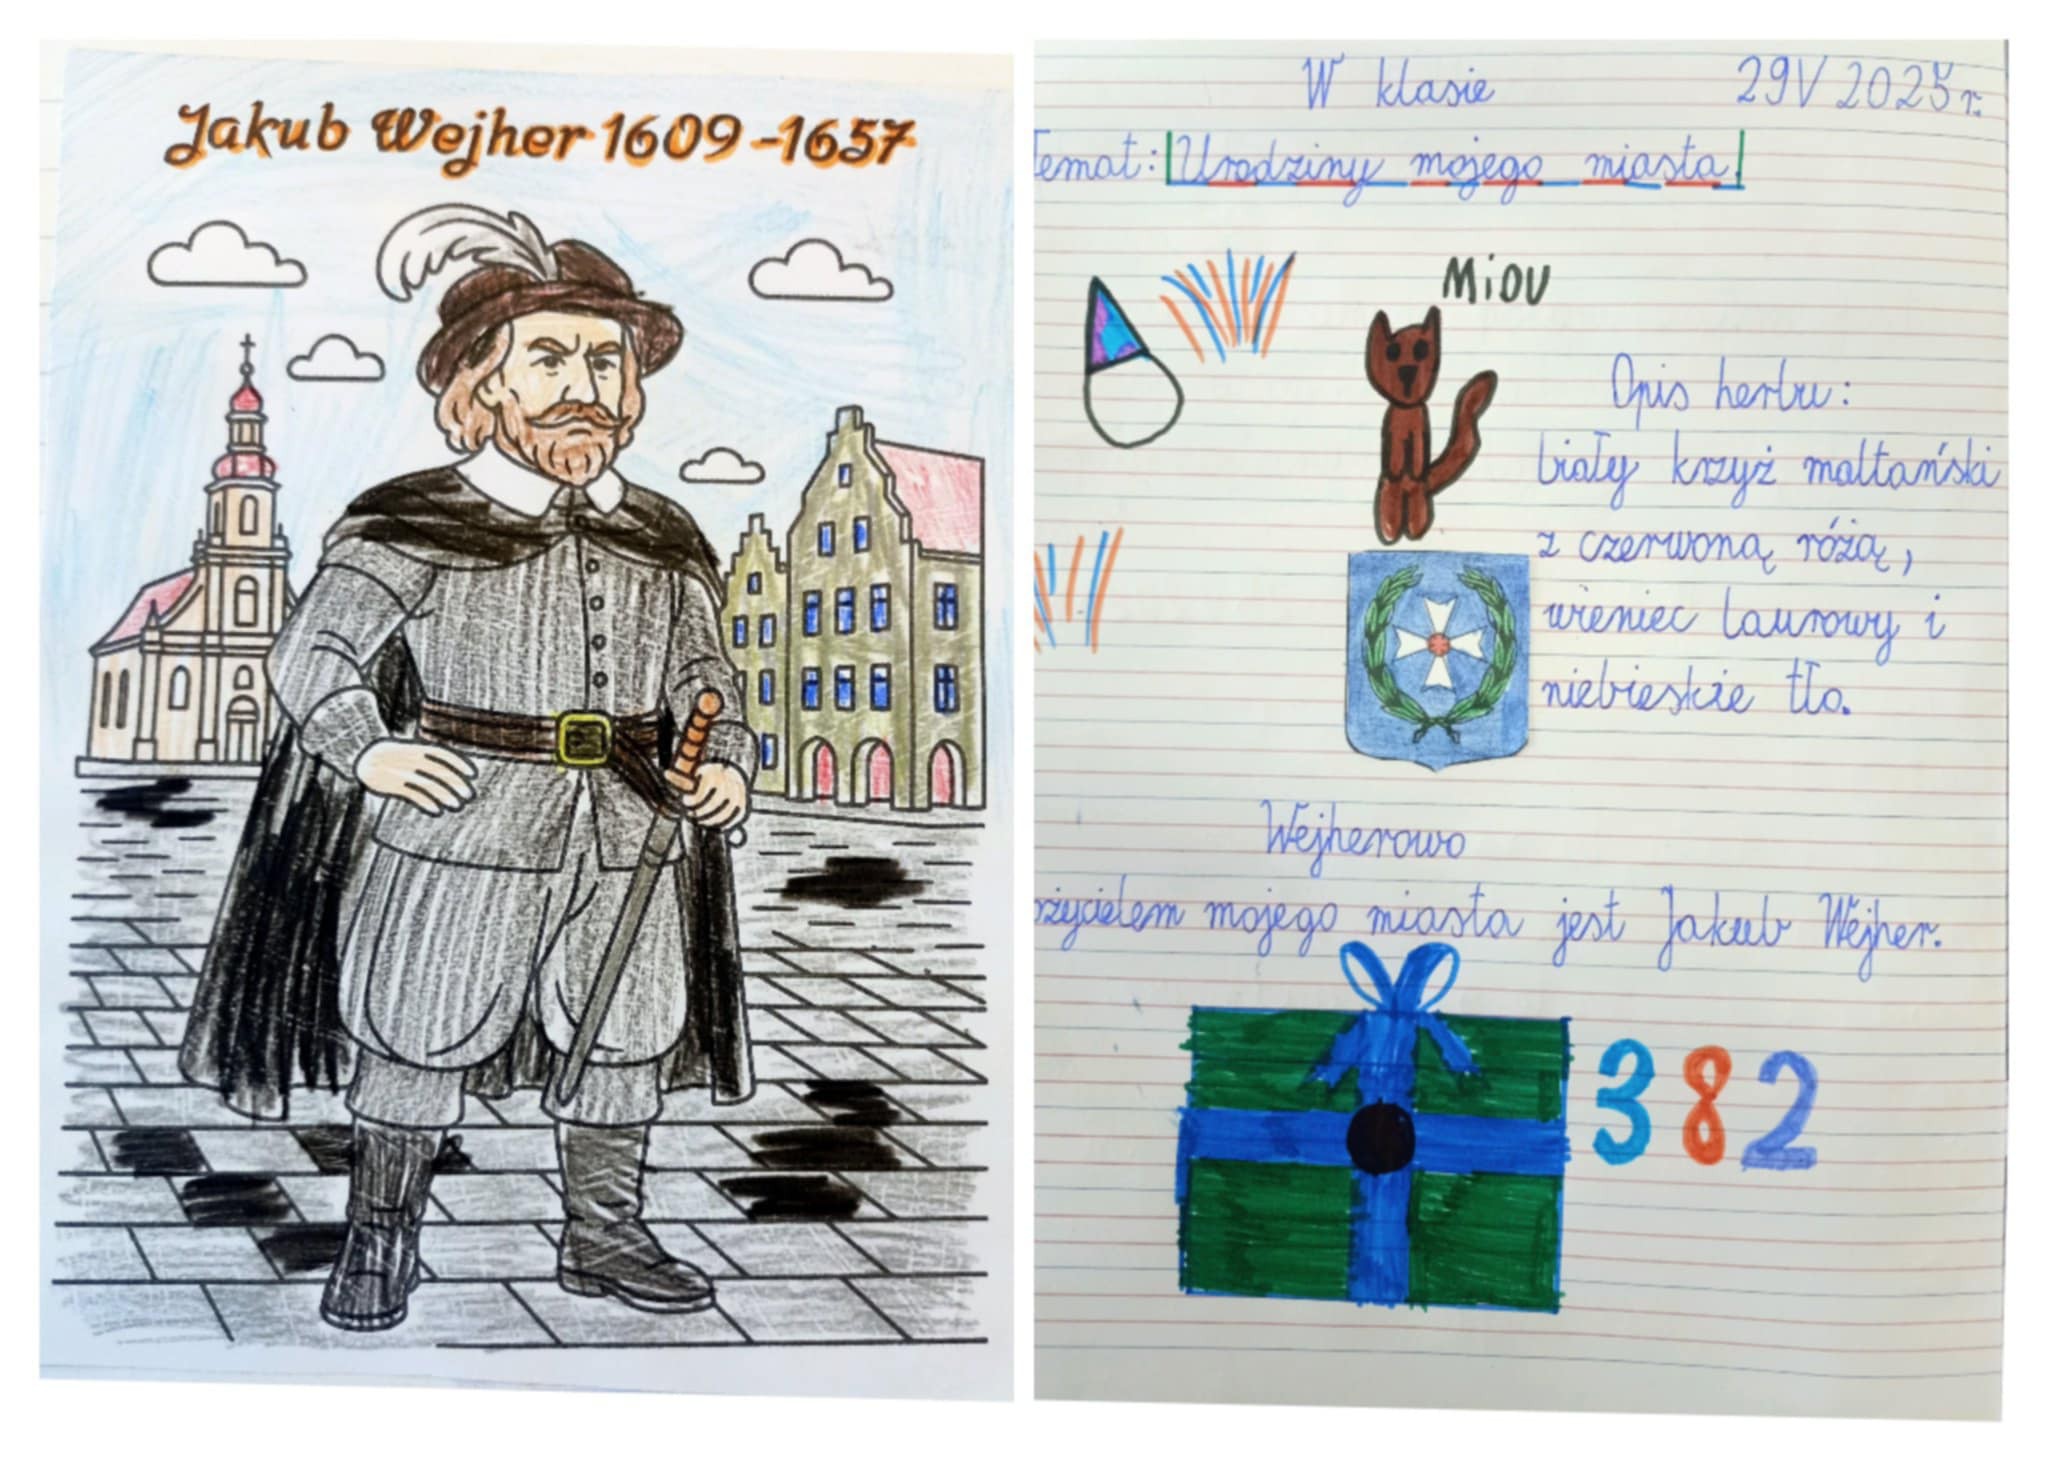 Jakub Wejher 1609-1657
W klasie 29V 2025 r.
temat: Urodziny mojego miasta.
Miau
Opis herbu:
biały krzyż maltański
z czerwoną różą,
wieniec laurowy i
niebieskie tło.
Wejherowo
ożycielem mojego miasta jest Jakub Wejher.
382